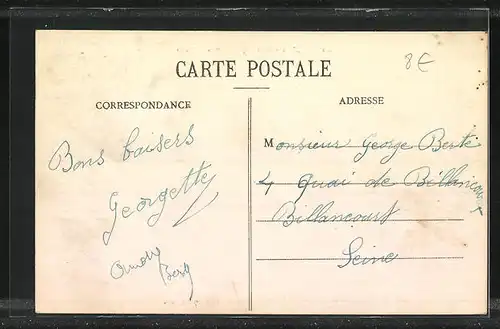 8€
CARTE POSTALE
CORRESPONDANCE
ADRESSE
Bons baisers
Georgette
Monsieur George Berté
4 Quai de Billancourt
Billancourt
Seine